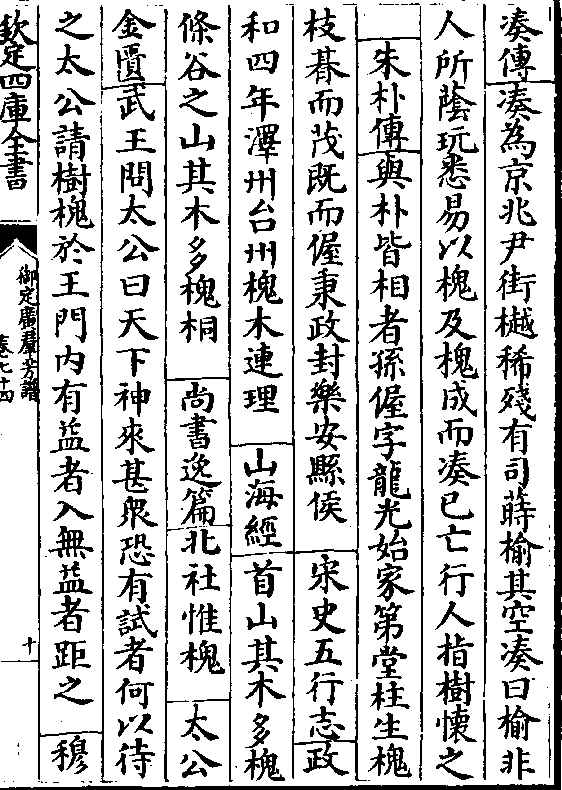 湊傳湊為京兆尹街樾稀殘有司蒔榆其空湊曰榆非
人所蔭玩悉易以槐及槐成而湊已亡行人指樹懷之
朱朴傳與朴皆相者孫偓字龍光始家第堂柱生槐
枝朞而茂既而偓秉政封樂安縣侯 宋史五行志政
和四年澤州台州槐木連理 山海經首山其木多槐
條谷之山其木多槐桐 尚書逸篇北社惟槐 太公
金匱武王問太公曰天下神來甚衆恐有試者何以待
之太公請樹槐於王門内有益者入無益者距之 穆
欽定四庫全書
御定廣羣芳譜
卷七十四
十